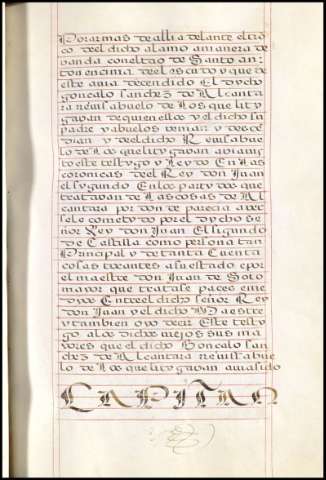 Por armas de allia delante el tro
co del dicho alamo amanera de
vanda con el tao de santo an
ton encima del escudo y que de
este avia decendido El dycho
gonçalo sanchez de Alcanta
ra reuisabuelo de Los que lity
gavan de quien ellos y el dicho su
padre y abuelos tenian y desce
dian y del dicho Reuisabue
lo de Los que lity gavan avia vis
to este testygo y Leydo En Las
coronicas del Rey don Juan
el sygundo En los partydos que
tratavan de Las cosas de Al
cantara por donde parecia aver
sele cometydo por el dycho se
ñor Rey don Juan El sigundo
de Castilla como persona tan
Principal y de tanta Cuenta
cosas tocantes a su estado con
el maestre don Juan de Soto
mayor que tratase paces entre
dyos Entre el dicho señor Rey
don Juan y el dicho Maestre
y tambien oyo decir Este testy
go a los dichos mejos sus ma
yores que el dicho Goncalo san
chez de Alcantara reuisabue
lo de Los que lity gavan avia sido
CAPITAN